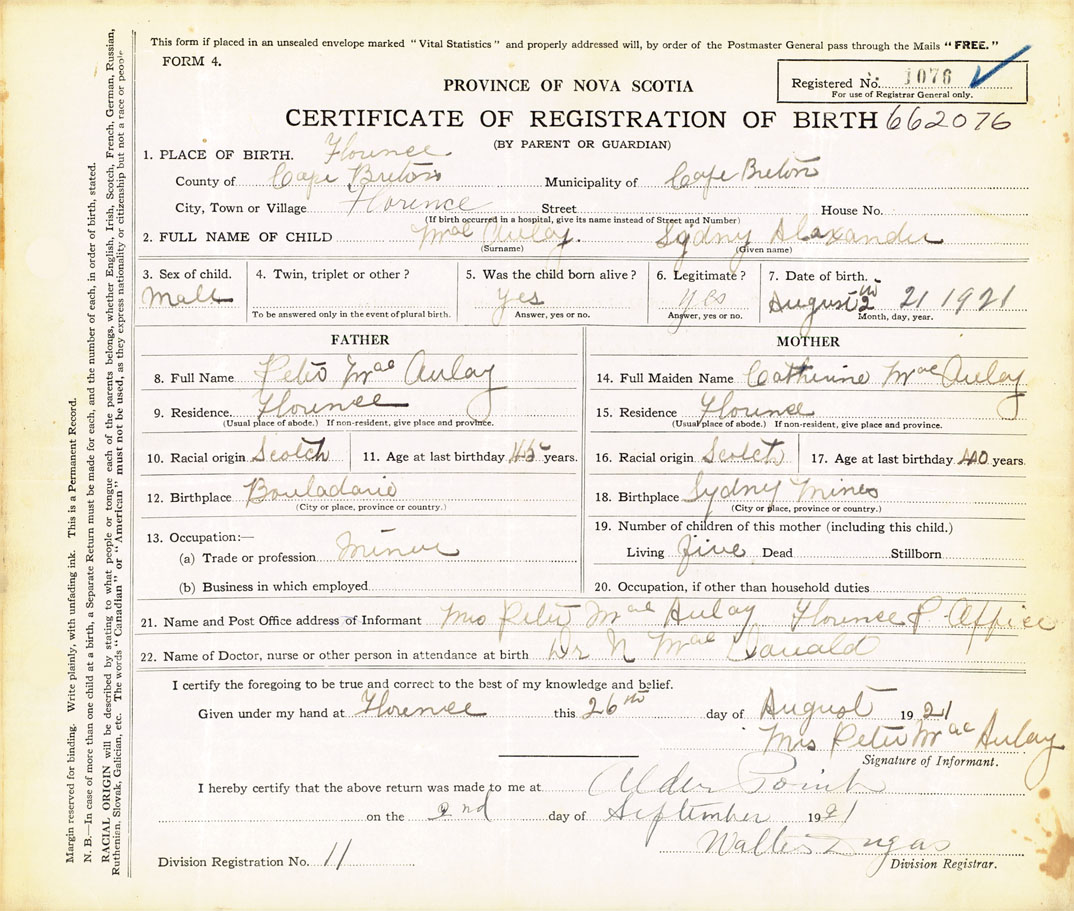 This form if placed in an unsealed envelope marked "Vital Statistics" and properly addressed will, by order of the Postmaster General pass through the Mails "FREE."
FORM 4.
Registered No. 1076
For use of Registrar General only.
PROVINCE OF NOVA SCOTIA
CERTIFICATE OF REGISTRATION OF BIRTH 662076
(BY PARENT OR GUARDIAN)
1. PLACE OF BIRTH. Florence
County of Cape Breton Municipality of Cape Breton
City, Town or Village Florence Street House No.
(If birth occurred in a hospital, give its name instead of Street and Number)
2. FULL NAME OF CHILD Mac Aulay. Sydny Alaxander
(Surname) (Given name)
3. Sex of child. 4. Twin, triplet or other? 5. Was the child born alive? 6. Legitimate? 7. Date of birth.
Male yes yes August 21 1921
To be answered only in the event of plural birth. Answer, yes or no. Answer, yes or no. Month, day, year.
FATHER
8. Full Name Peter Mac Aulay
9. Residence. Florence
(Usual place of abode.) If non-resident, give place and province.
10. Racial origin Scotch 11. Age at last birthday 45 years.
12. Birthplace Bouladarie
(City or place, province or country.)
13. Occupation:—
(a) Trade or profession Miner
(b) Business in which employed
MOTHER
14. Full Maiden Name Catherine Mac Aulay
15. Residence Florence
(Usual place of abode.) If non-resident, give place and province.
16. Racial origin Scotch 17. Age at last birthday 40 years.
18. Birthplace Sydny Mines
(City or place, province or country.)
19. Number of children of this mother (including this child.)
Living five Dead Stillborn
20. Occupation, if other than household duties
21. Name and Post Office address of Informant Mrs Peter Mac Aulay Florence P Office
22. Name of Doctor, nurse or other person in attendance at birth Dr N Mac Donald
I certify the foregoing to be true and correct to the best of my knowledge and belief.
Given under my hand at Florence this 26th day of August 1921
Mrs Peter Mac Aulay
Signature of Informant.
I hereby certify that the above return was made to me at Alder Point
on the 2nd day of September 1921
Dugas
Division Registration No. 11 Division Registrar.
Margin reserved for binding. Write plainly, with unfading ink. This is a Permanent Record.
N. B.—In case of more than one child at a birth, a Separate Return must be made for each, and the number of each, in order of birth, stated.
RACIAL ORIGIN will be described by stating to what people or tongue each of the parents belongs, whether English, Irish, Scotch, French, German, Russian,
Ruthenian. Slovak, Galician, etc. The words "Canadian" or "American" must not be used, as they express nationality or citizenship but not a race or people